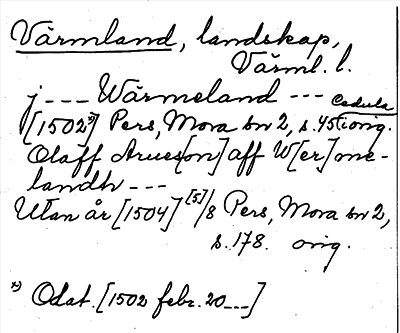 Värmland, landskap,
Värml. l.
j --- Wärmeland --- Cedula
[1502*)] Pers, Mora br 2, s. 45 i orig.
Olaff Arues[on] aff W[er]me-
landh ---
Utan år [1504] [5]/8 Pers, Mora br 2,
s. 178. orig.
*) Odat. [1502 febr. 20 ---]